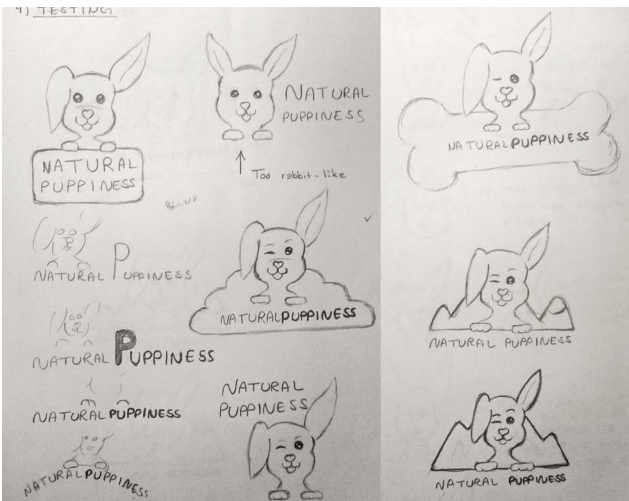 4) TESTING
NATURAL
PUPPINESS
NATURAL
PUPPINESS
Too rabbit-like
NATURAL PUPPINESS
NATURAL PUPPINESS
NATURALPUPPINESS
NATURALPUPPINESS
NATURALPUPPINESS
NATURAL
PUPPINESS
NATURALPUPPINESS
NATURAL PUPPINESS
NATURAL PUPPINESS